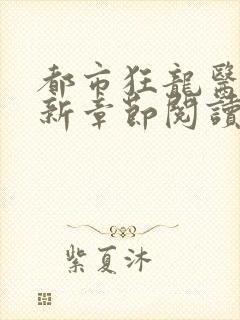 都市狂龍醫
新章節閱讀
紫夏沐